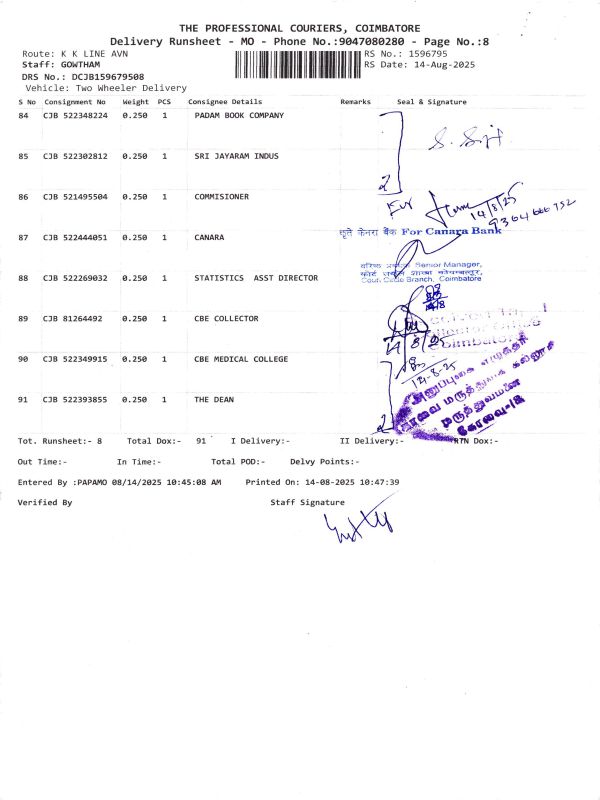 THE PROFESSIONAL COURIERS, COIMBATORE
Delivery Runsheet - MO - Phone No.:9047080280 - Page No.:8
Route: K K LINE AVN
RS No.: 1596795
Staff: GOWTHAM
RS Date: 14-Aug-2025
DRS No.: DCJB159679508
Vehicle: Two Wheeler Delivery
S No Consignment No Weight PCS Consignee Details Remarks Seal & Signature
84 CJB 522348224 0.250 1 PADAM BOOK COMPANY
85 CJB 522302812 0.250 1 SRI JAYARAM INDUS
2
86 CJB 521495504 0.250 1 COMMISIONER
For
14/8/25
9364666752
87 CJB 522444051 0.250 1 CANARA
कृते केनरा बैंक For Canara Bank
Senior Manager,
88 CJB 522269032 0.250 1 STATISTICS ASST DIRECTOR
Branch, Coimbatore
89 CJB 81264492 0.250 1 CBE COLLECTOR
Coimbatore
14/8/25
90 CJB 522349915 0.250 1 CBE MEDICAL COLLEGE
14-8-25
91 CJB 522393855 0.250 1 THE DEAN
2
அனுப்புகை எழுத்தர்
கோவை மருத்துவக் கல்லூரி
மருத்துவமனை
கோவை-18
Tot. Runsheet:- 8 Total Dox:- 91 I Delivery:- II Delivery:- RTN Dox:-
Out Time:- In Time:- Total POD:- Delvy Points:-
Entered By :PAPAMO 08/14/2025 10:45:08 AM Printed On: 14-08-2025 10:47:39
Verified By Staff Signature